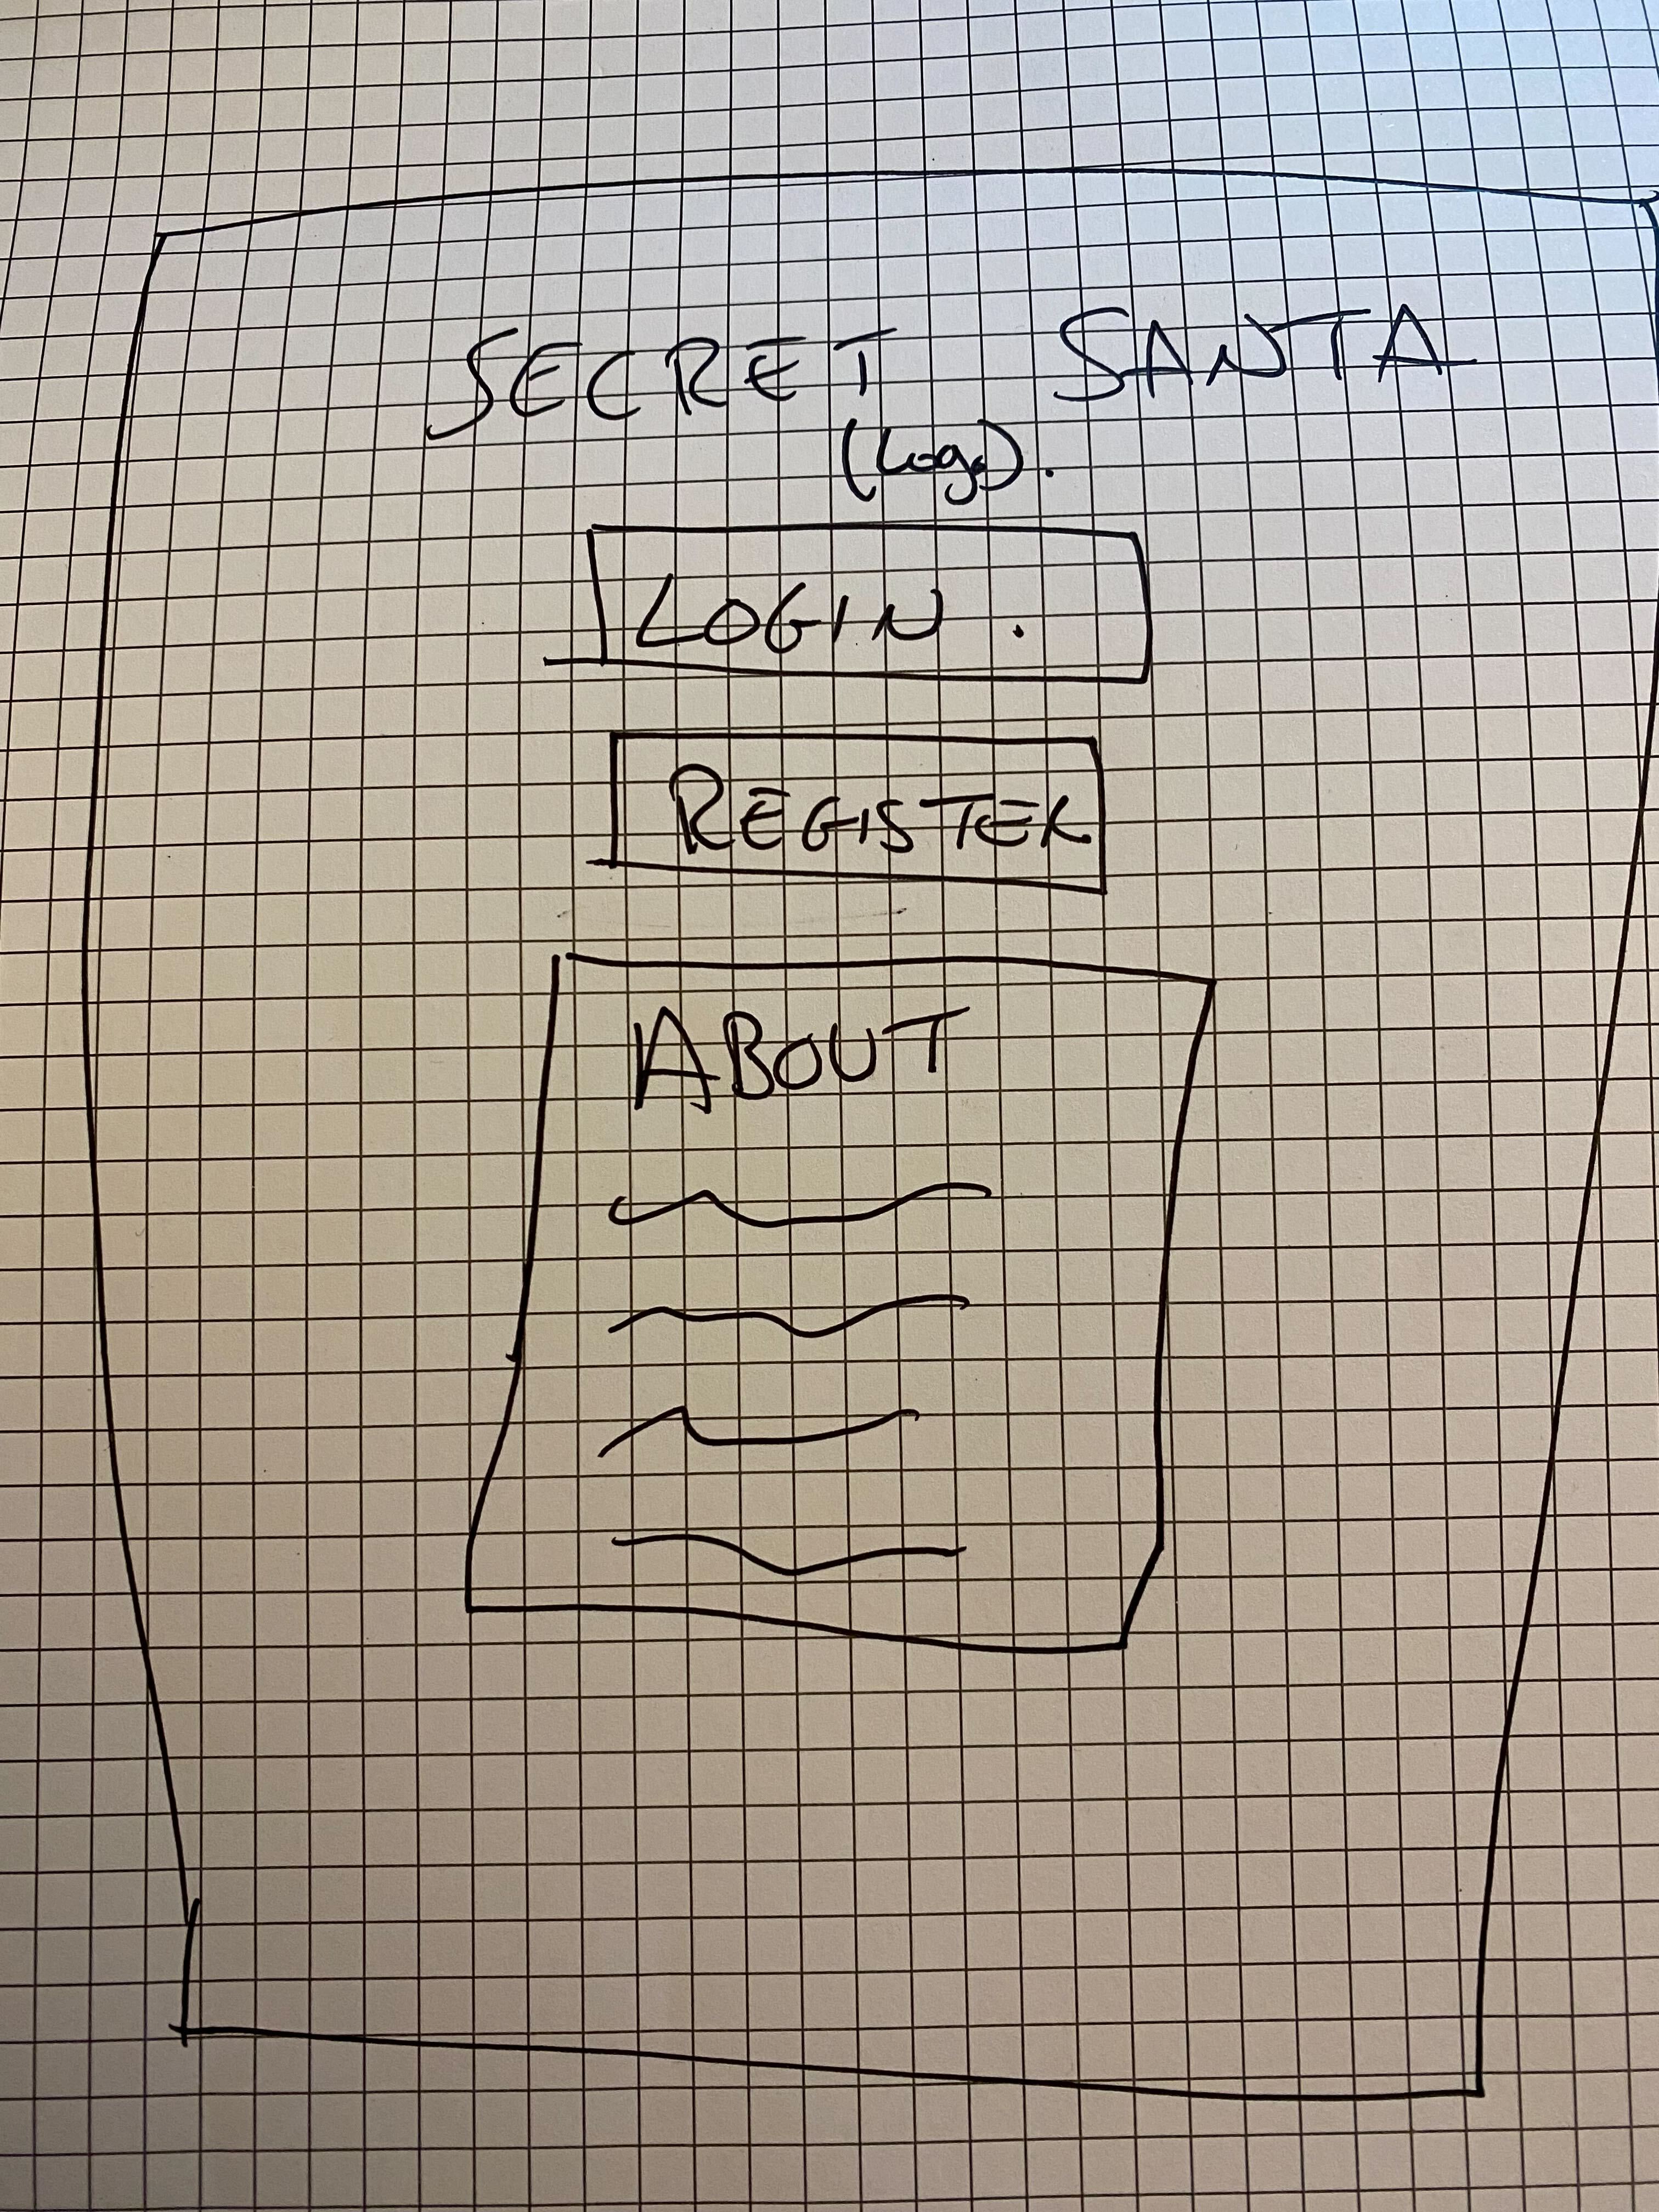 SECRET SANTA
(Logo).
LOGIN .
REGISTER
ABOUT